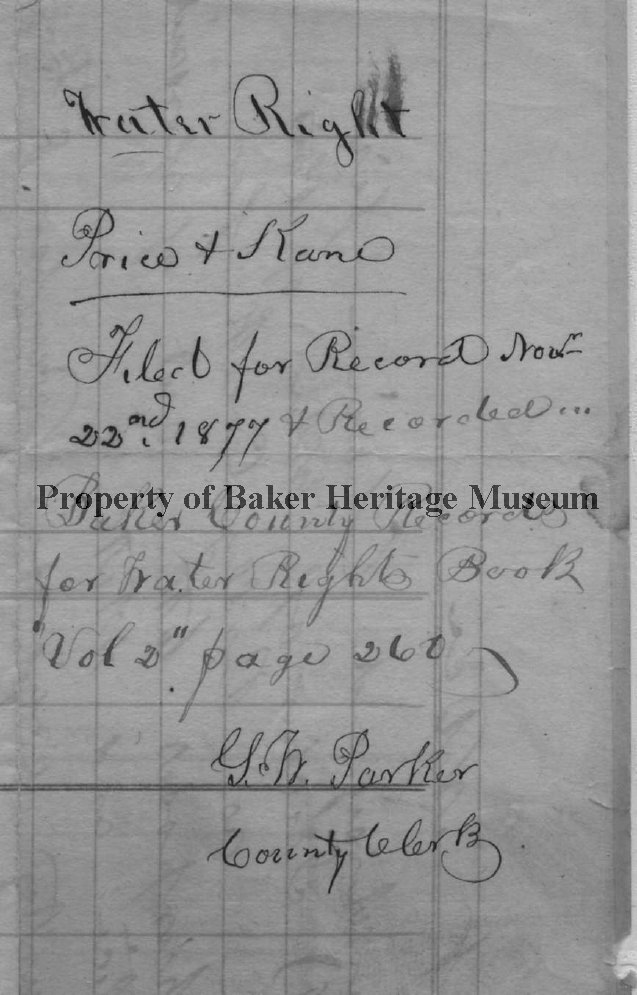 Water Right
Price & Kane
Filed for Record Novr
22nd, 1877 & Recorded ...
Property of Baker Heritage Museum
Baker County Records
for Water Rights Book
"Vol 2" page 260
G. W. Parker
County Clerk